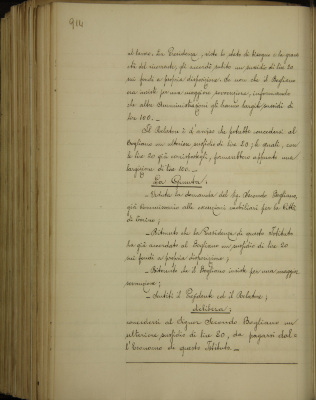 914
al lavoro. La Presidenza, visto lo stato di bisogno e la gravi
tà del momento, gli accordò subito un sussidio di lire 20
sui fondi a propria disposizione. Se non che il Bogliano
ora insiste per una maggiore sovvenzione, informando
che altre Amministrazioni gli hanno largito sussidi di
lire 100. —
Il Relatore è d'avviso che potrebbe concedersi al
Bogliano un ulteriore sussidio di lire 80; le quali, con
le lire 20 già corrispostegli, formerebbero appunto una
largizione di lire 100. —
La Giunta;
— Veduta la domanda del Sig. Secondo Bogliano,
già Commissario alle esazioni mobiliari per la Città
di Torino;
— Ritenuto che la Presidenza di questo Istituto
ha già accordato al Bogliano un sussidio di lire 20
sui fondi a propria disposizione;
— Ritenuto che il Bogliano insiste per una maggior
sovvenzione;
— Sentiti il Presidente ed il Relatore;
delibera;
concedersi al Signor Secondo Bogliano un
ulteriore sussidio di lire 80, da pagarsi dal-
l'Economo di questo Istituto. —